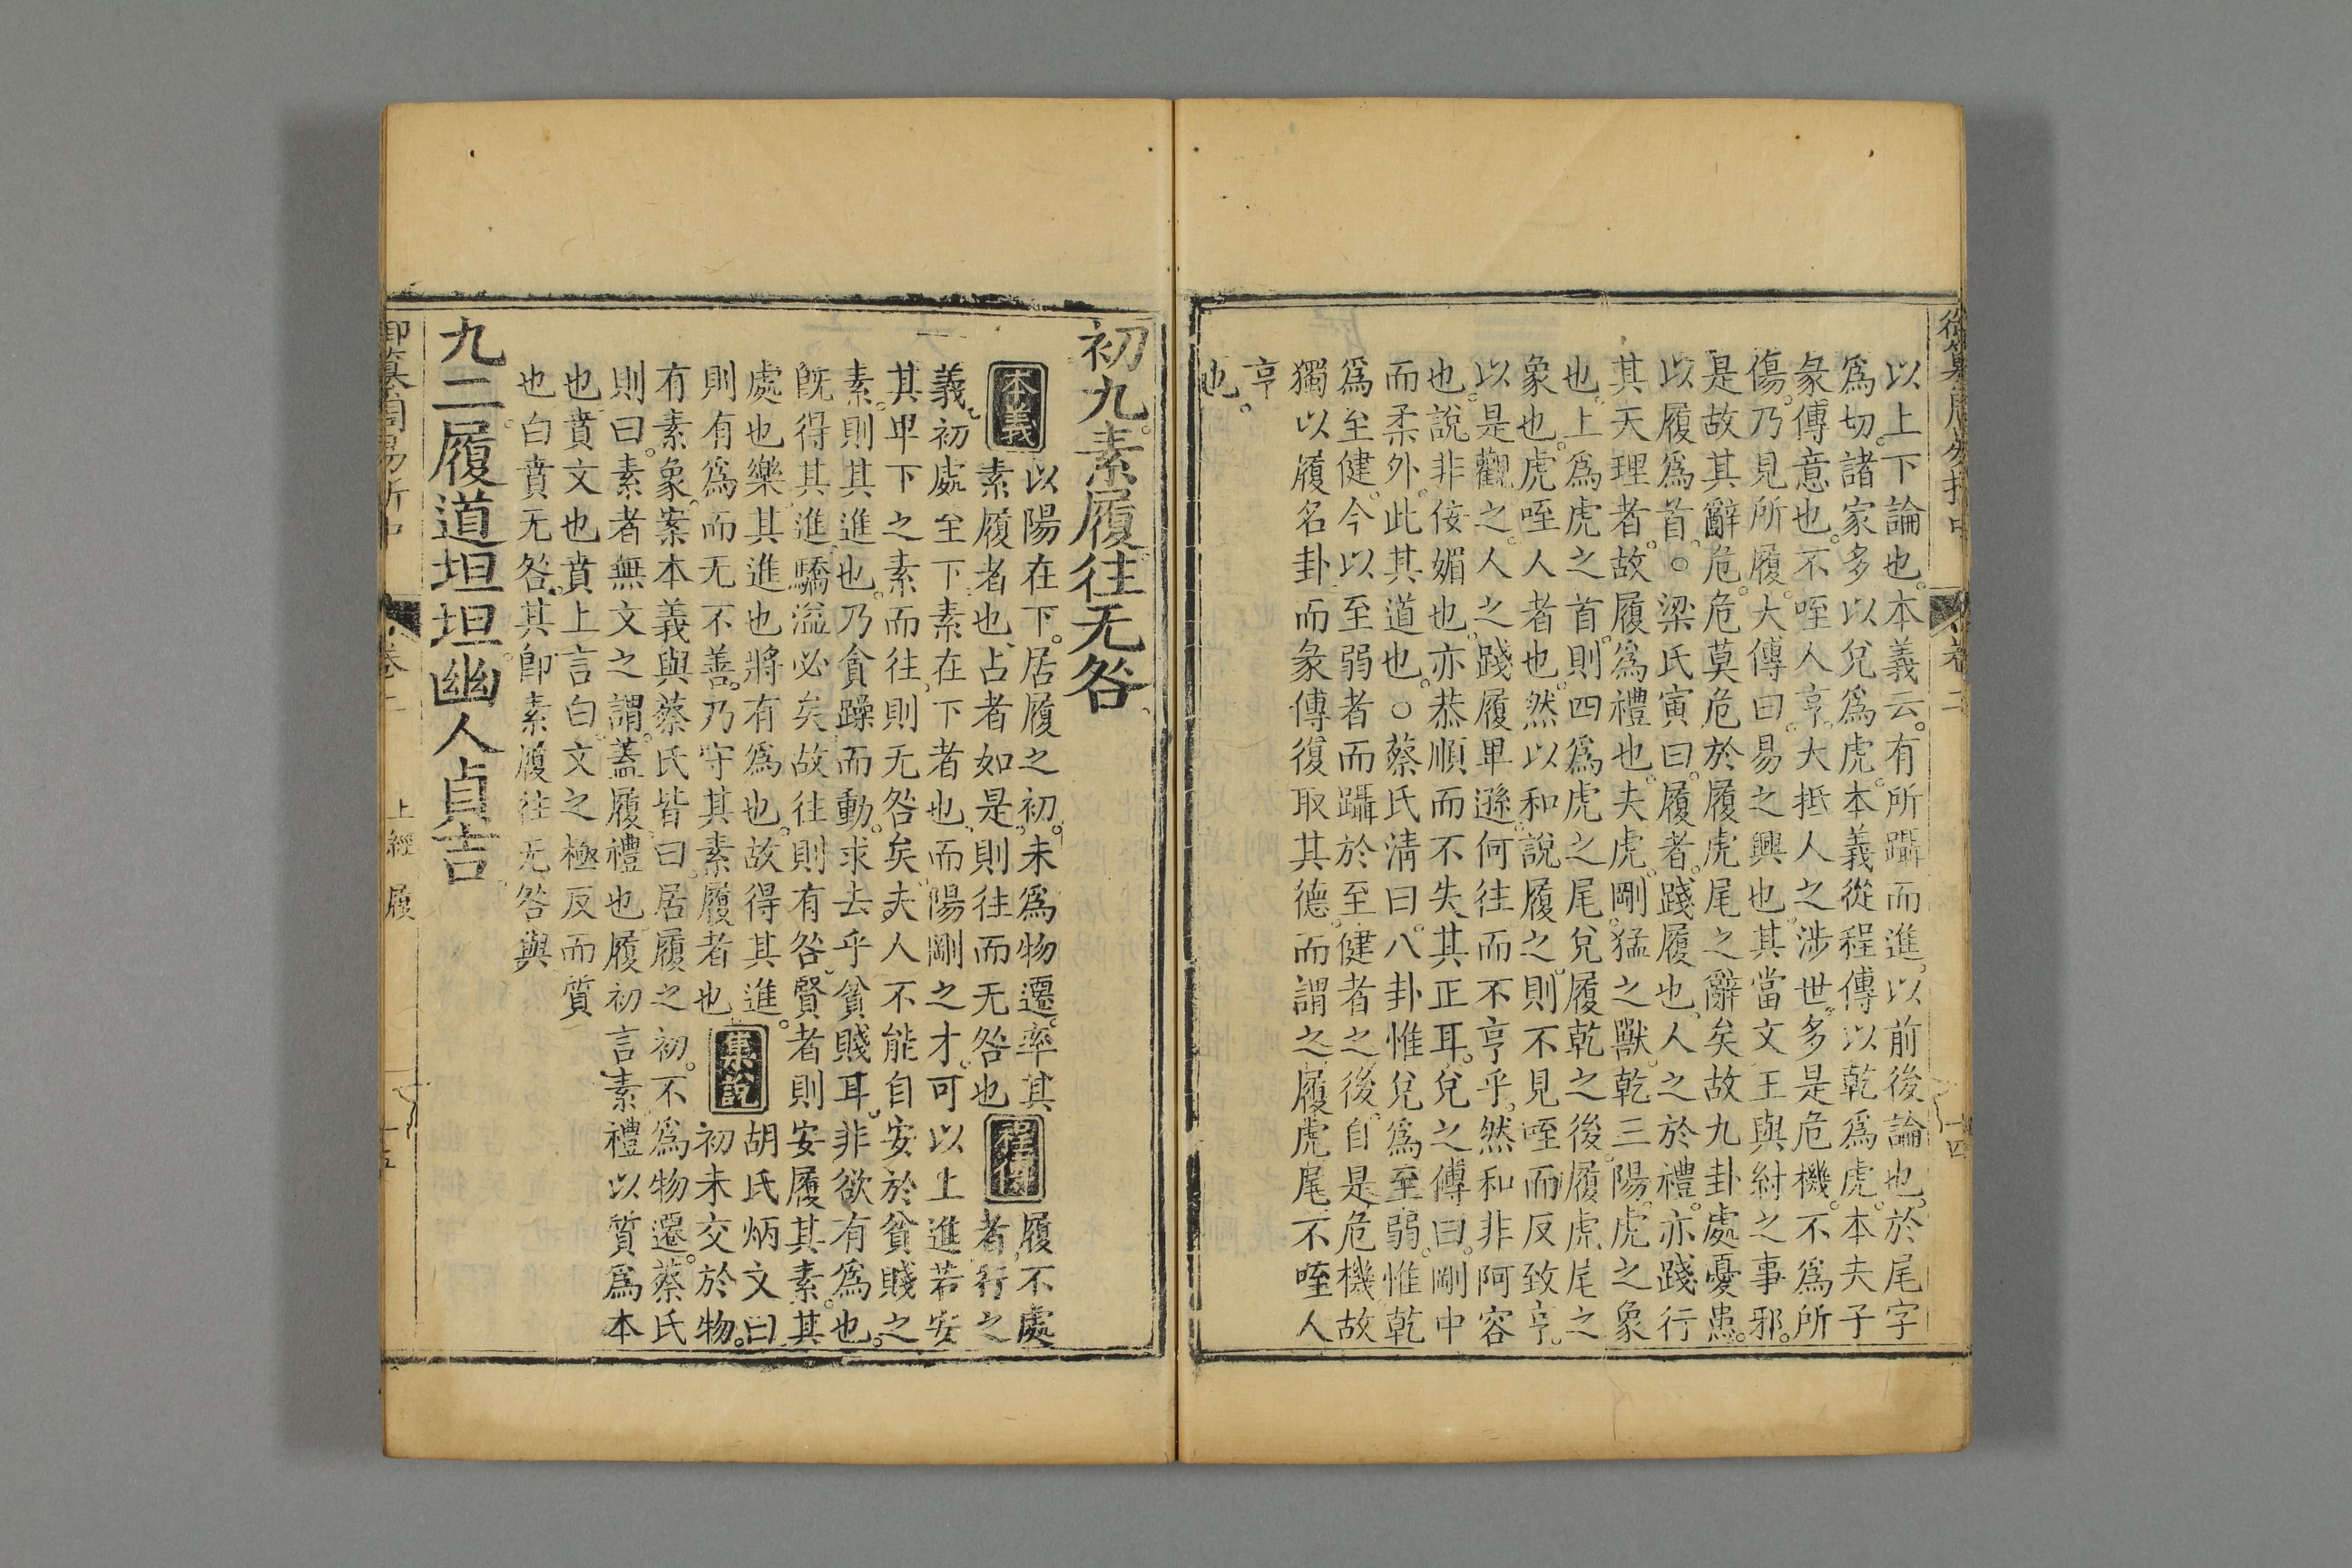 御纂周易折中 卷二 十四
以上下論也本義云有所躡而進以前後論也於尾字
爲切諸家多以兌爲虎本義從程傳以乾爲虎本夫子
彖傳意也不咥人亨大抵人之涉世多是危機不爲所
傷乃見所履大傳曰易之興也其當文王與紂之事邪
是故其辭危危莫危於履虎尾之辭矣故九卦處憂患
以履爲首○梁氏寅曰履者踐履也人之於禮亦踐行
其天理者故履爲禮也夫虎剛猛之獸乾三陽虎之象
也上爲虎之首則四爲虎之尾兌履乾之後履虎尾之
象也虎咥人者也然以和說履之則不見咥而反致亨
以是觀之人之踐履卑遜何往而不亨乎然和非阿容
也說非佞媚也亦恭順而不失其正耳兌之傳曰剛中
而柔外此其道也○蔡氏清曰八卦惟兌爲至弱惟乾
爲至健今以至弱者而躡於至健者之後自是危機故
獨以履名卦而彖傳復取其德而謂之履虎尾不咥人
亨
也
初九素履往无咎
本義 以陽在下居履之初未爲物遷率其
素履者也占者如是則往而无咎也 程傳 履不處
者行之
義初處至下素在下者也而陽剛之才可以上進若安
其卑下之素而往則无咎矣夫人不能自安於貧賤之
素則其進也乃貪躁而動求去乎貧賤耳非欲有爲也
旣得其進驕溢必矣故往則有咎賢者則安履其素其
處也樂其進也將有爲也故得其進
則有爲而无不善乃守其素履者也 集說 胡氏炳文曰
初未交於物
有素象案本義與蔡氏皆曰居履之初不爲物遷蔡氏
則曰素者無文之謂蓋履禮也履初言素禮以質爲本
也賁文也賁上言白文之極反而質
也白賁无咎其卽素履往无咎與
九二履道坦坦幽人貞吉
御纂周易折中 卷二 上經 履 十五